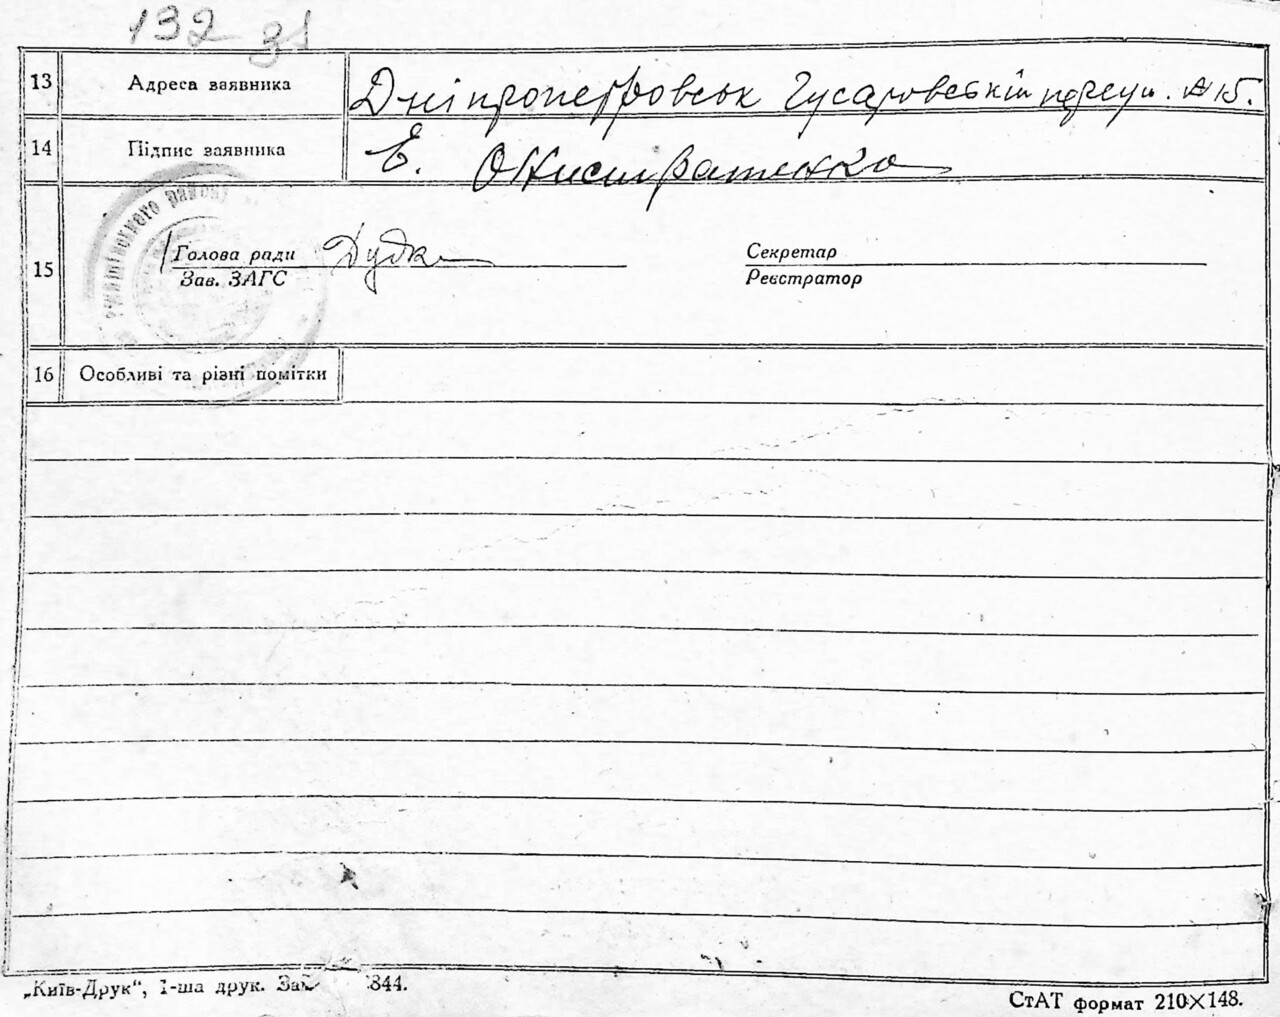 132 зв
13 Адреса заявника Дніпропетровськ Гусаровський переул. №15.
14 Підпис заявника Е.
15 Голова ради Дудка Секретар
Зав. ЗАГС Реєстратор
16 Особливі та різні помітки
„Київ-Друк“, 1-ша друк. 844.
СтАТ формат 210×148.